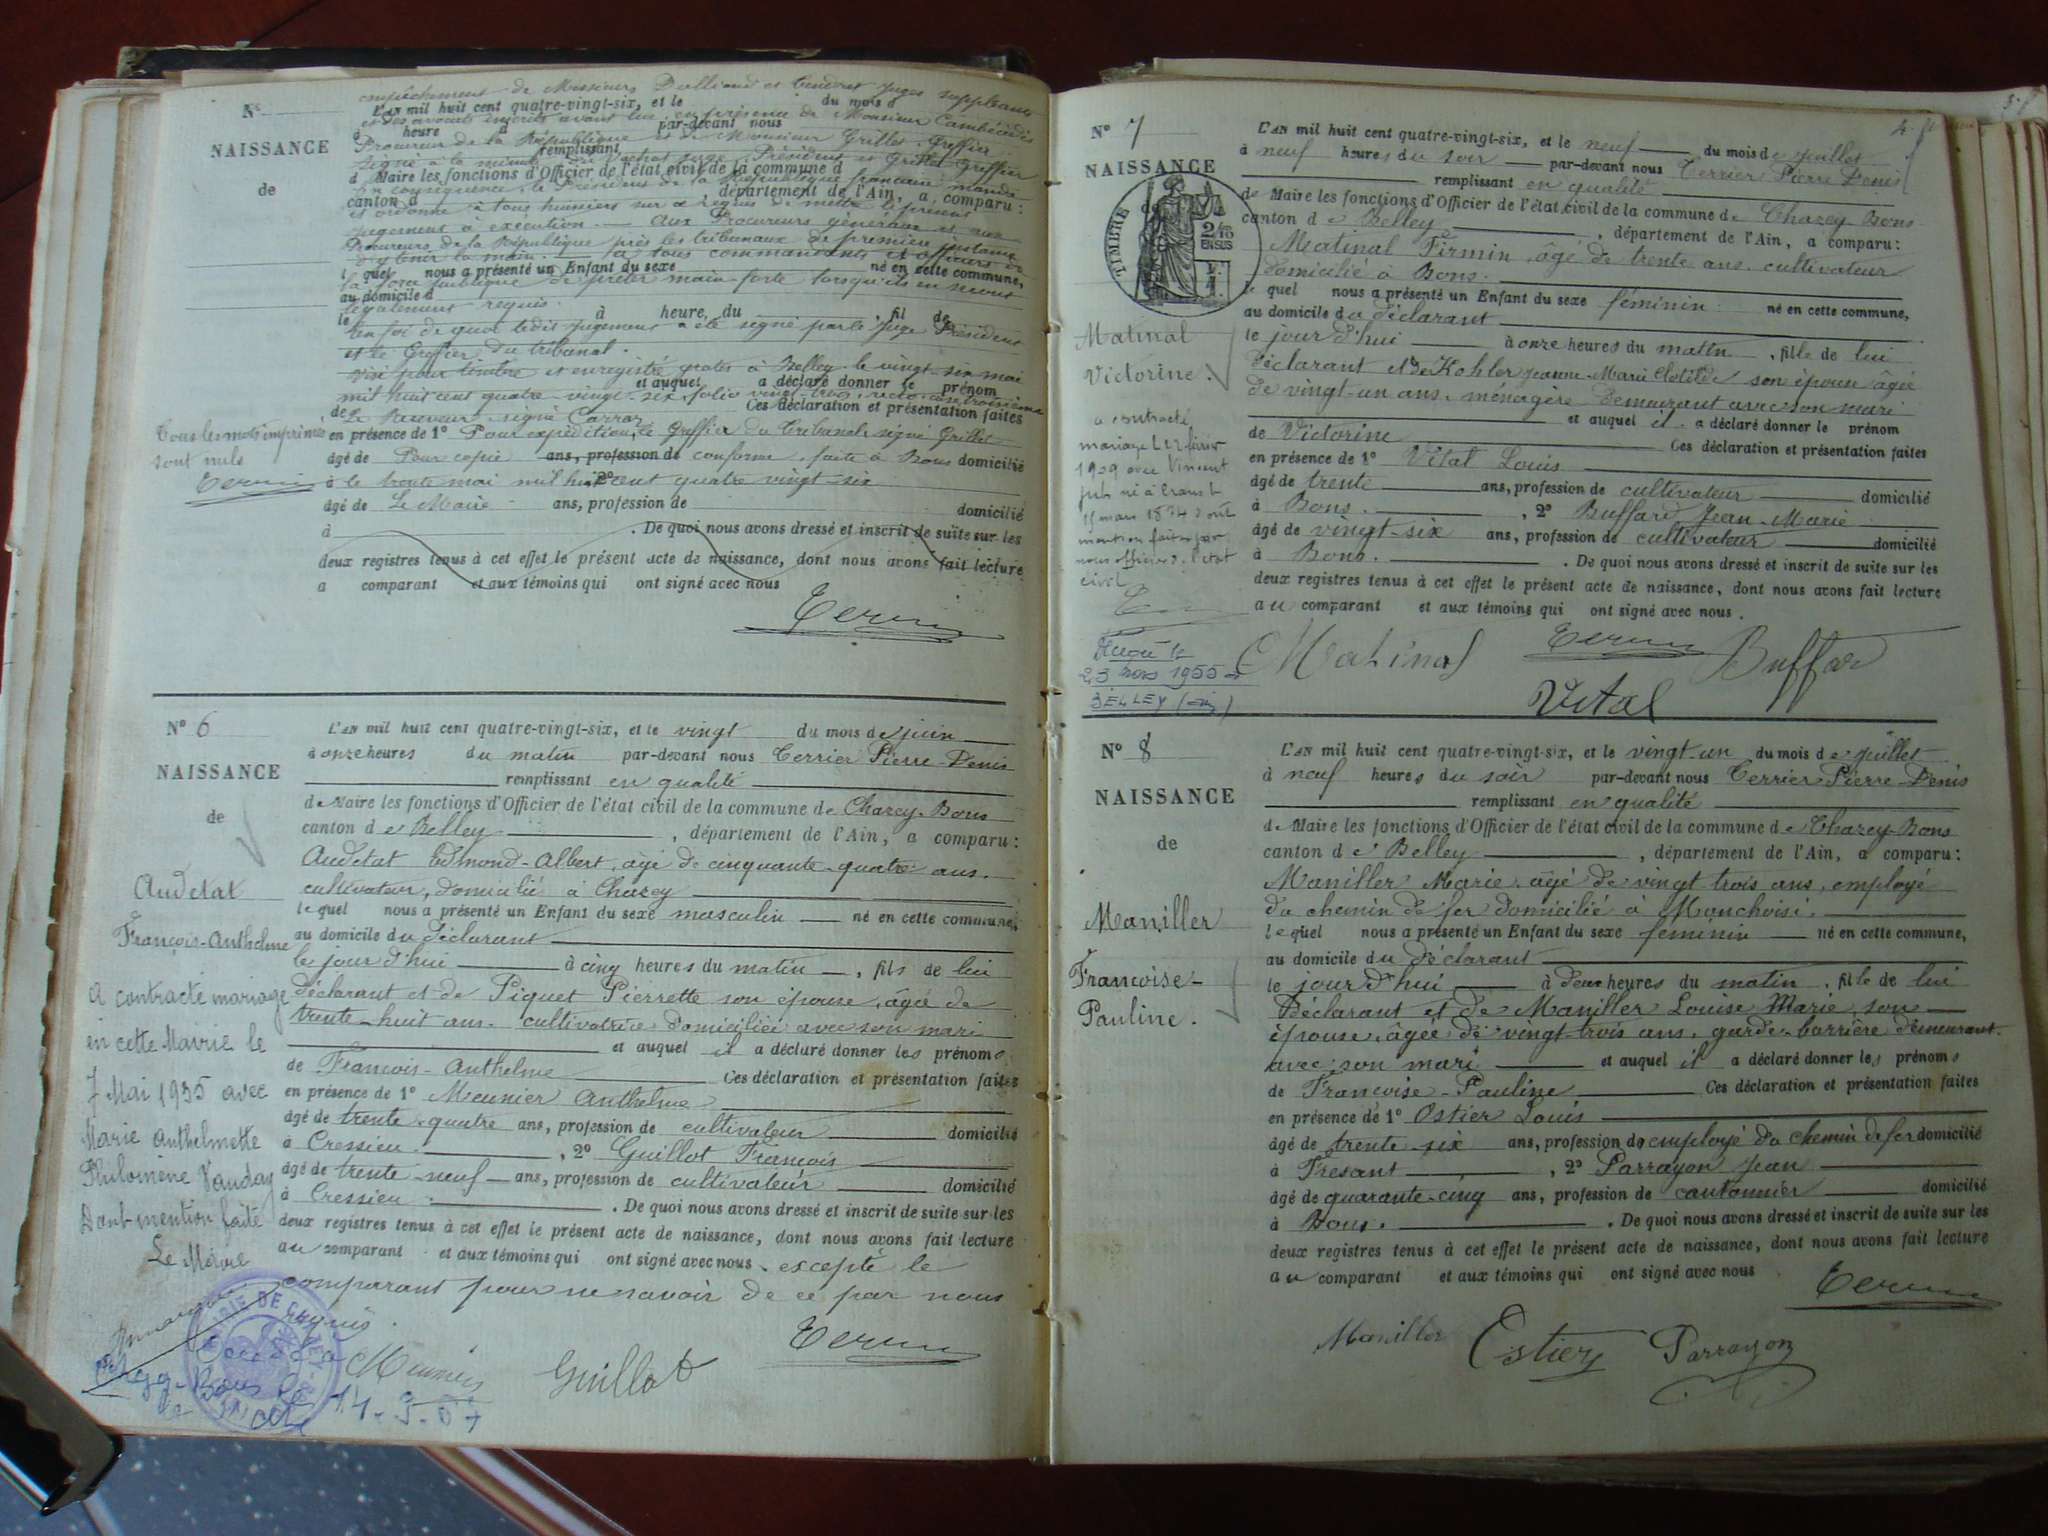 empêchement de Messieurs et Tendret juges suppléants
N°
L'AN mil huit cent quatre-vingt-six, et le du mois d
et des avocats inscrits avant lui, en présence de Monsieur
à heure d par-devant nous
Procureur de la République et de Monsieur Grillet, Greffier
NAISSANCE
remplissant
signé à la minute Président et Grillet Greffier
d Maire les fonctions d'Officier de l'état civil de la commune d
En conséquence, le Président de la République française mande
de
canton d département de l'Ain, a comparu :
et ordonne à tous huissiers sur ce requis de mettre le présent
jugement à exécution. Aux Procureurs généraux et aux
Procureurs de la République près les tribunaux de première instance
d'y tenir la main. A tous commandants et officiers de
l quel nous a présenté un Enfant du sexe né en cette commune,
la force publique de prêter main forte lorsqu'ils en seront
au domicile d
légalement requis.
le à heure, du , fil de
En foi de quoi ledit jugement a été signé par le juge Président
et le Greffier du tribunal.
Visé pour timbre et enregistré gratis à Belley le vingt-six mai
et auquel a déclaré donner le prénom
mil huit cent quatre-vingt-six, folio vingt-trois, recto, case troisième
de Ces déclaration et présentation faites
Le Receveur, signé Carraz
Tous les mots imprimés
sont nuls
en présence de 1° Pour expédition, le Greffier du Tribunal, signé Grillet
âgé de Pour copie ans, profession de conforme, faite à Bons domicilié
à le trente mai mil huit cent quatre vingt-six 2°
âgé de Le Maire ans, profession de domicilié
à . De quoi nous avons dressé et inscrit de suite sur les
deux registres tenus à cet effet le présent acte de naissance, dont nous avons fait lecture
a comparant et aux témoins qui ont signé avec nous
N° 6
NAISSANCE
de
Audetat
François-Anthelme
A contracté mariage
en cette Mairie le
7 Mai 1935 avec
Marie Anthelmette
Philomène Vanday
Dont mention faite
Le Maire
L'AN mil huit cent quatre-vingt-six, et le vingt du mois de juin
à onze heures du matin par-devant nous Terrier Pierre-Denis
remplissant en qualité
de Maire les fonctions d'Officier de l'état civil de la commune de Chazey-Bons
canton de Belley , département de l'Ain, a comparu :
Audetat Edmond-Albert, âgé de cinquante-quatre ans.
cultivateur, domicilié à Chazey
lequel nous a présenté un Enfant du sexe masculin né en cette commune,
au domicile du déclarant
le jour d'hui à cinq heures du matin, fils de lui
déclarant et de Piquet Pierrette son épouse, âgée de
trente-huit ans. cultivatrice domiciliée avec son mari
et auquel il a déclaré donner les prénoms
de François-Anthelme Ces déclaration et présentation faites
en présence de 1° Meunier Anthelme
âgé de trente-quatre ans, profession de cultivateur domicilié
à Cressieu. , 2° Guillot François
âgé de trente-neuf ans, profession de cultivateur domicilié
à Cressieu . De quoi nous avons dressé et inscrit de suite sur les
deux registres tenus à cet effet le présent acte de naissance, dont nous avons fait lecture
au comparant et aux témoins qui ont signé avec nous. excepté le
comparant pour ne savoir de ce par nous
requis.
Meunier Guillot
MAIRIE DE CHAZEY
N° 7
NAISSANCE
de
TIMBRE
Matinal
Victorine.
a contracté
mariage le 27 février
1909 avec Vincent
mention faite par
nous officier de l'état
civil
Décédée le
23 mars 1955 à
BELLEY (Ain)
L'AN mil huit cent quatre-vingt-six, et le neuf du mois de juillet
à neuf heures du soir par-devant nous Terrier Pierre Denis
remplissant en qualité
de Maire les fonctions d'Officier de l'état civil de la commune de Chazey-Bons
canton de Belley , département de l'Ain, a comparu :
Matinal Firmin, âgé de trente ans. cultivateur
domicilié à Bons.
le quel nous a présenté un Enfant du sexe féminin né en cette commune,
au domicile du déclarant
le jour d'hui à onze heures du matin, fille de lui
déclarant et de Kohler Jeanne-Marie Clotilde son épouse âgée
de vingt-un ans, ménagère demeurant avec son mari
et auquel il a déclaré donner le prénom
de Victorine Ces déclaration et présentation faites
en présence de 1° Vital Louis
âgé de trente ans, profession de cultivateur domicilié
à Bons. , 2° Buffard Jean-Marie
âgé de vingt-six ans, profession de cultivateur domicilié
à Bons. . De quoi nous avons dressé et inscrit de suite sur les
deux registres tenus à cet effet le présent acte de naissance, dont nous avons fait lecture
au comparant et aux témoins qui ont signé avec nous.
Matinal Buffard
Vital
N° 8
NAISSANCE
de
Maniller
Françoise-
Pauline.
L'AN mil huit cent quatre-vingt-six, et le vingt-un du mois de juillet
à neuf heures du soir par-devant nous Terrier Pierre-Denis
remplissant en qualité
de Maire les fonctions d'Officier de l'état civil de la commune de Chazey-Bons
canton de Belley , département de l'Ain, a comparu :
Maniller Marie, âgé de vingt trois ans, employé
du chemin de fer domicilié à Monchoisi.
lequel nous a présenté un Enfant du sexe féminin né en cette commune,
au domicile du déclarant
le jour d'hui à deux heures du matin, fille de lui
Déclarant et de Maniller Louise Marie, son
épouse, âgée de vingt-trois ans, garde-barrière demeurant
avec son mari et auquel il a déclaré donner les prénoms
de Françoise-Pauline Ces déclaration et présentation faites
en présence de 1° Ostier Louis
âgé de trente-six ans, profession de employé du chemin de fer domicilié
à Fresant , 2° Parrayon Jean
âgé de quarante-cinq ans, profession de cantonnier domicilié
à Bons. . De quoi nous avons dressé et inscrit de suite sur les
deux registres tenus à cet effet le présent acte de naissance, dont nous avons fait lecture
au comparant et aux témoins qui ont signé avec nous
Maniller Ostier Parrayon